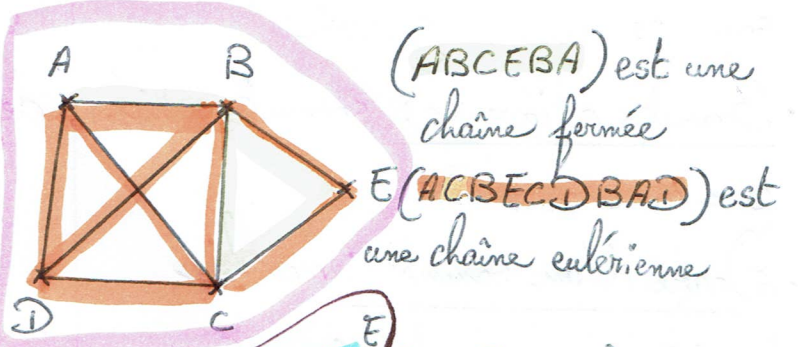 A
B
(ABCEBA) est une
chaîne fermée
E (ACBECDBAD) est
une chaîne eulérienne
D
C
E